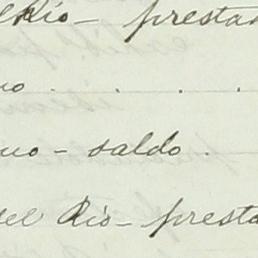 Rio - presta
no . . . .
no - saldo .
del Rio - presta